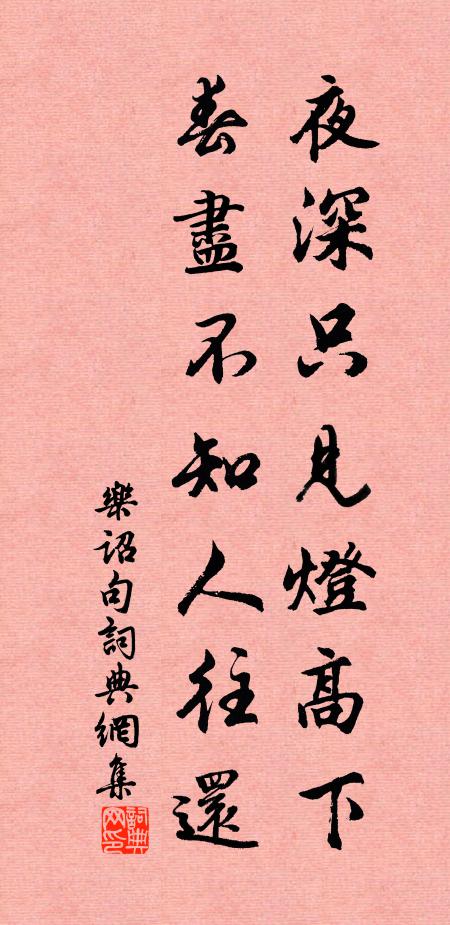 夜深只見燈高下
春盡不知人往還
樂詔句詞典網集
詞典网印